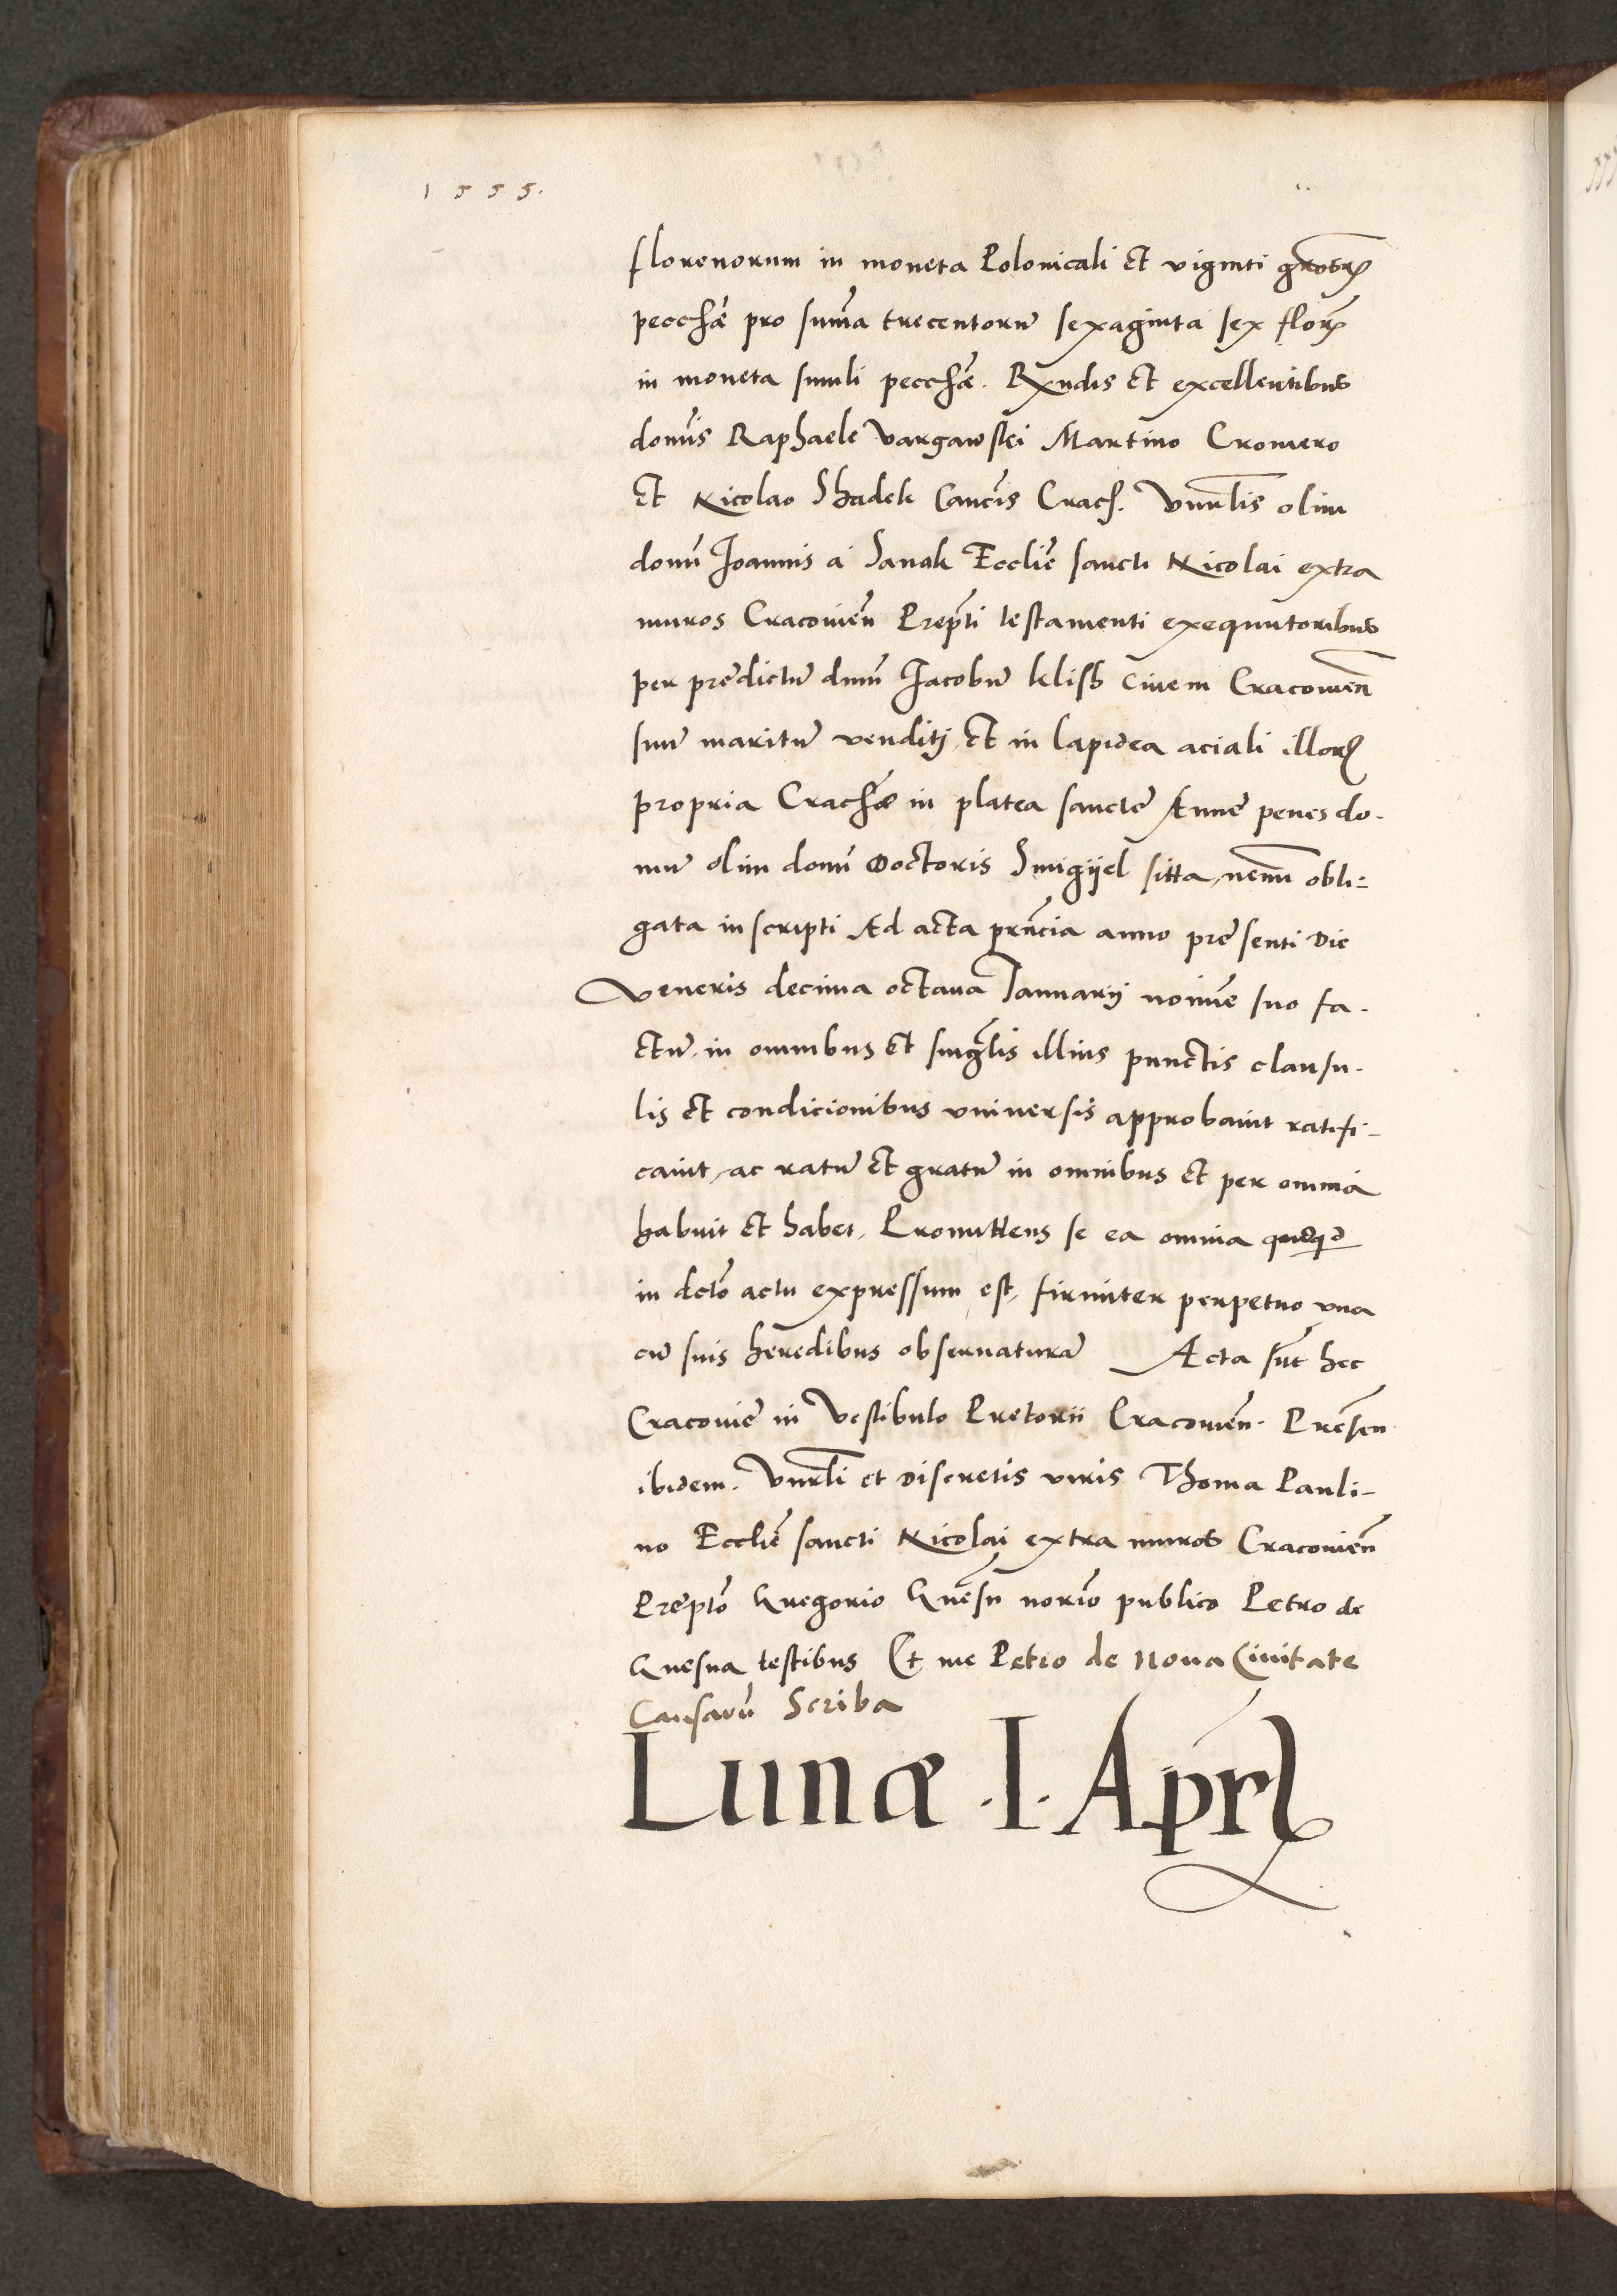 1555.
florenorum in moneta Polonicali et viginti grossorꝝ
pecchæ pro sum̃a trecentorũ sexaginta sex florꝝ
in moneta simili pecchæ. Rxndis et excellentibus
domĩs Raphaele Vargawski Martino Cromero
et Nicolao Shadek Cancĩs Crach. Vnrlĩs olim
domĩ Joannis a Sanok Ecclĩe sancti Nicolai extra
muros Cracovieñ Prepti testamenti exequutoribus
per predictũ dnum̃ Jacobũ klisch Civem Cracovieñ
suũ maritũ venditi, et in lapidea aciali illorꝝ
propria Crachæ in platea sanctę Annę penes do-
mũ olim domĩ Doctoris Smigijel sitta, obli-
gata inscripti Ad acta prñcia anno presenti die
Veneris decima octava Januarij noĩne suo fa-
ctũ, in omnibus et singlĩs illius punctis clausu-
lis et condicionibus vniversis approbavit ratifi-
cavit, ac ratũ et gratũ in omnibus et per omnia
habuit et habet, Promittens se ea omnia quidqd
in dictõ actu expressum est, firmiter perpetuo vna
cũ suis heredibus observaturã Acta sũt hec
Cracovię in Vestibulo Pretorii Cracovieñ. Preseñ
ibidem. Vnrlĩ et discretis viris Thoma Pauli-
no Ecclĩe sancti Nicolai extra muros Cracovieñ
Preptõ Gregorio Gnesñ norĩo publico Petro de
Gnesna testibus Et me Petro de Nova Civitate
Causarũ Scriba
Lunæ .I. Aprl